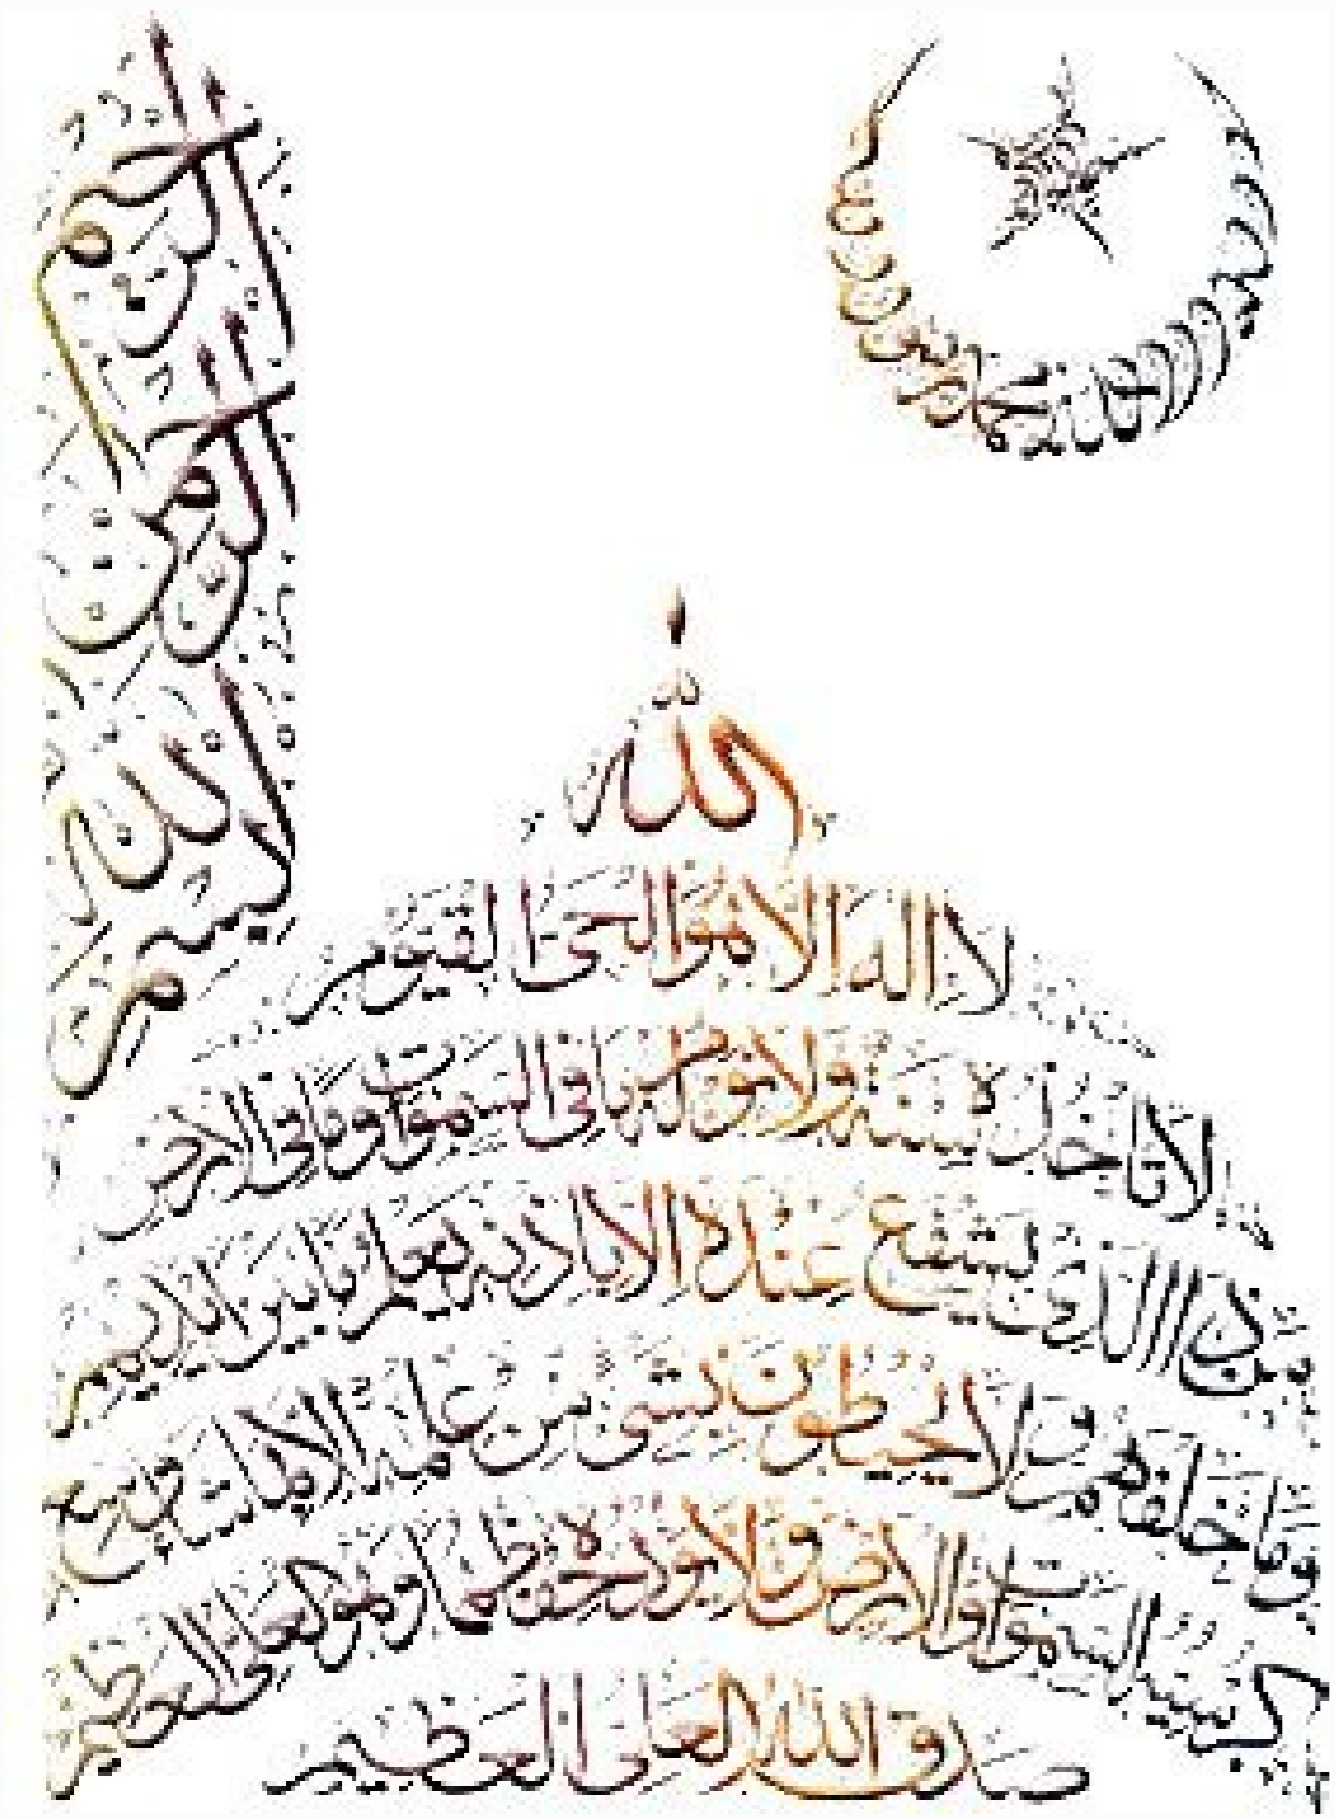 بسم الله الرحمن الرحيم
الله
لا اله الا هو الحي القيوم
لا تاخذه سنة ولا نوم له ما في السموات وما في الارض
من ذا الذي يشفع عنده الا باذنه يعلم ما بين ايديهم
وما خلفهم ولا يحيطون بشئ من علمه الا بما شاء وسع
كرسيه السموات والارض ولا يؤده حفظهما وهو العلي العظيم
صدق الله العلي العظيم